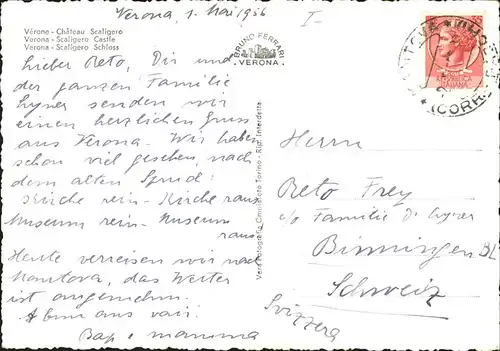 Verona, 1. Mai 1956
I
Vérone - Château Scaligero
Verona - Scaligero Castle
Verona - Scaligero Schloss
BRUNO FERRARI
VERONA
Lieber Reto, Dir und
der ganzen Familie
senden wir
einen herzlichen Gruss
aus Verona. Wir haben
schon viel gesehen, nach
dem alten Spruch:
Kirche rein - Kirche raus
Museum rein - Museum
raus.
Heute verreisen wir nach
Mantova, das Wetter
ist angenehm.
Bap + mamma
Vera Fotografia Torino - Rip. Interdetta
ITALIANA
(CORR.
Herrn
Reto Frey
c/o Familie
Binningen BL
Schweiz
Svizzera